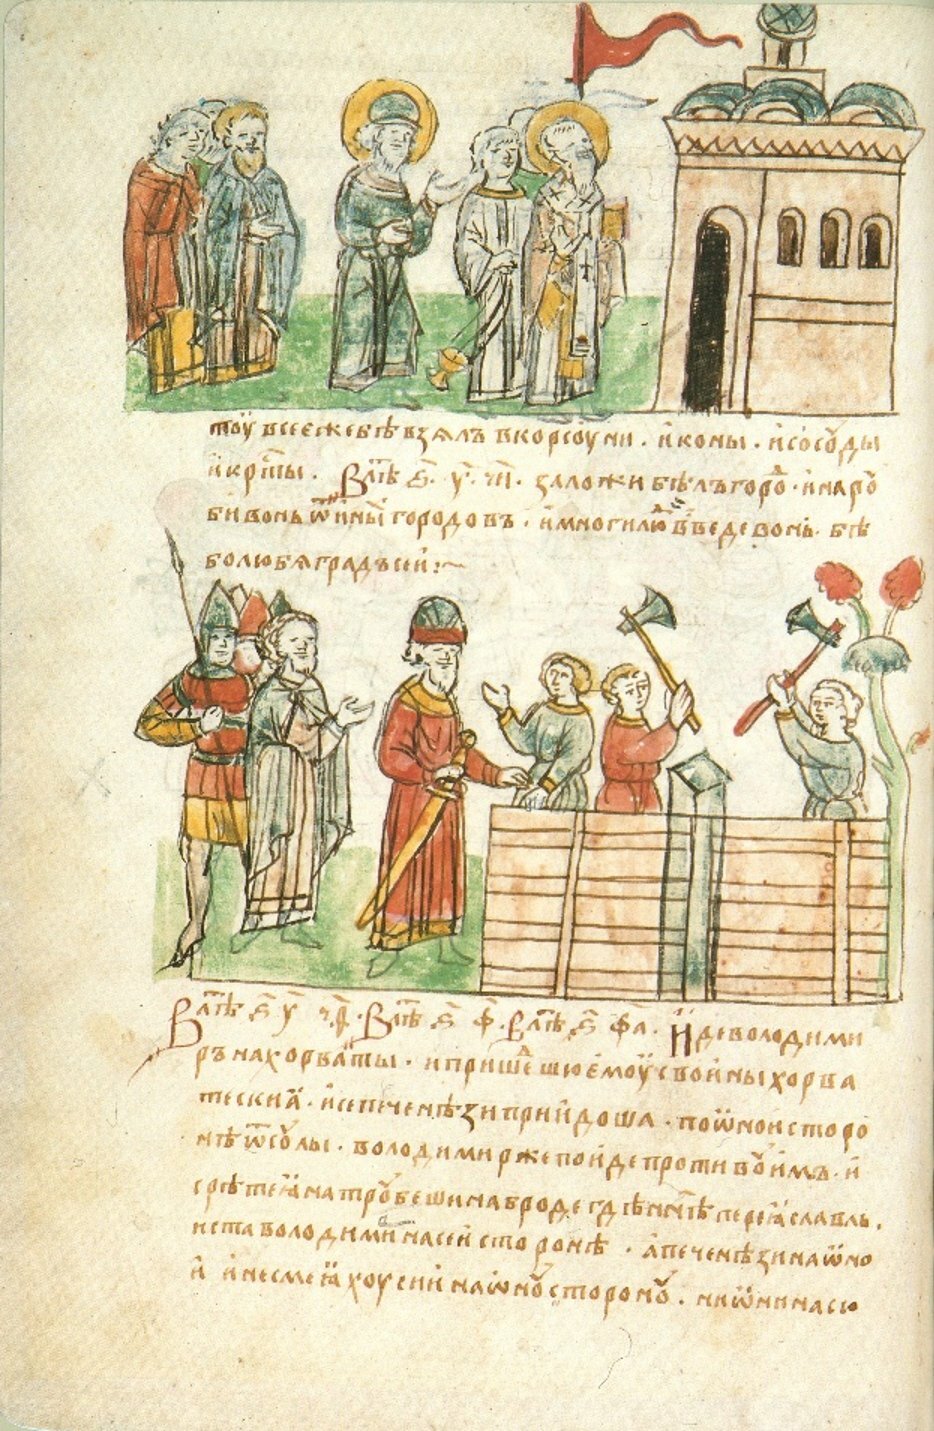 тоу всеежебѣвзялъ вкорсоуни · и҆коны · и҆сосоуды
и҆крⷭ҇ты · В лѣⷮ ҂ѕ҃ · у҃ · ч҃ · заложи бѣлъгороⷣ · и҆наро
бивонь ѿи҆ны́ городовъ · и҆многилюⷣ введевонь · бѣ
болюбя градъсеи҆ :~
В лѣⷮ ҂ѕ҃ у҃ · В лѣⷮ ҂ѕ҃ ф҃ · В лѣⷮ ҂ѕ҃ ф҃а · И҆деволодими
ръ нахорваты · и пришеⷣшюе҆моу своины хорва
тескиꙗ · и҆се печенѣзи приидоша · поѡнои сторо
нѣ ѿсоулы · володимиржепоиде противоуи҆мъ · и҆
срѣтеꙗ натроубешинаброде гдѣннѣ переꙗславль ·
иста володими насеи сторонѣ · а҆печенѣзи наѡно
и и҆несмеꙗхоу сии наѡноу стороноу · ниѡни насю